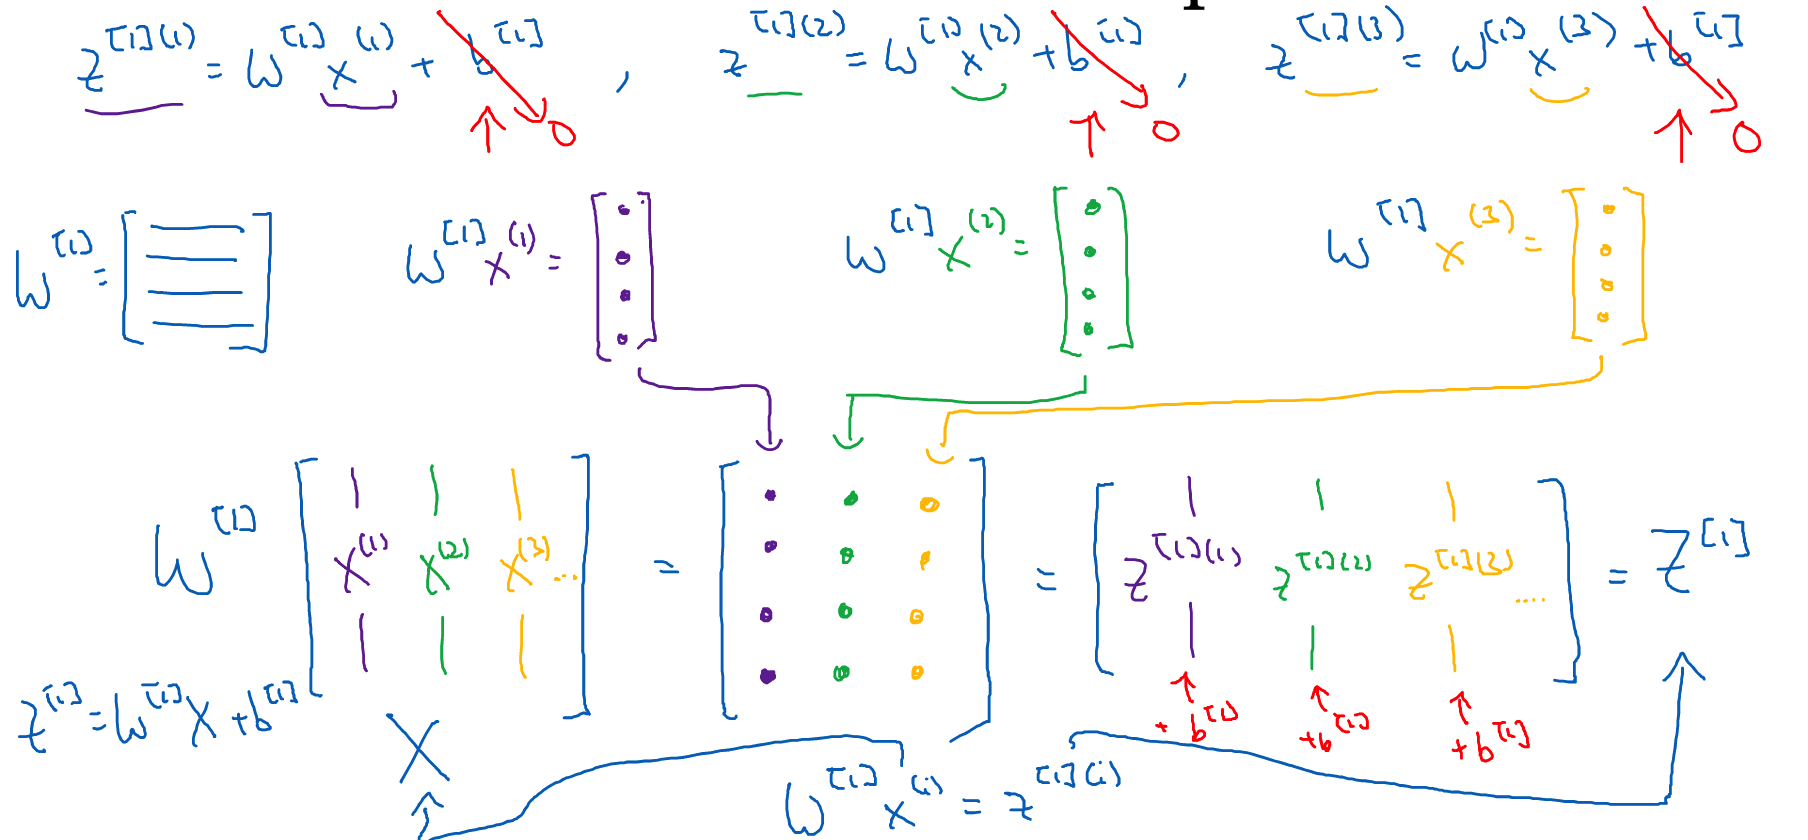 z^{[1](1)} = W^{[1]} x^{(1)} + b^{[1]} , z^{[1](2)} = W^{[1]} x^{(2)} + b^{[1]} , z^{[1](3)} = W^{[1]} x^{(3)} + b^{[1]}
↑ 0 ↑ 0 ↑ 0
W^{[1]} = [ ] W^{[1]} x^{(1)} = [ ] W^{[1]} x^{(2)} = [ ] W^{[1]} x^{(3)} = [ ]
W^{[1]} [ x^{(1)} x^{(2)} x^{(3)} ... ] = [ ] = [ z^{[1](1)} z^{[1](2)} z^{[1](3)} .... ] = Z^{[1]}
+ b^{[1]} + b^{[1]} + b^{[1]}
Z^{[1]} = W^{[1]} X + b^{[1]}
X
W^{[1]} x^{(i)} = z^{[1](i)}